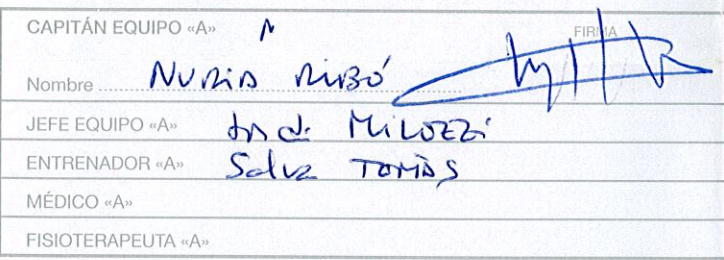 CAPITÁN EQUIPO «A» FIRMA
Nombre NURIA RIBÓ
JEFE EQUIPO «A» MILOZZI
ENTRENADOR «A» Salva TOMÀS
MÉDICO «A»
FISIOTERAPEUTA «A»